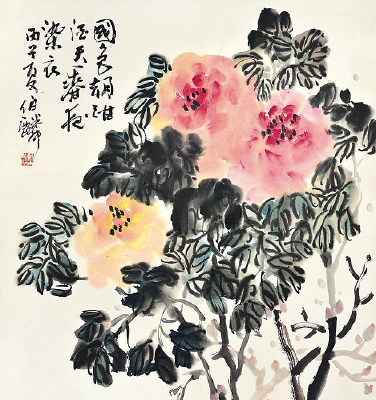 國色朝酣
酒天香夜
染衣
丙子夏伯